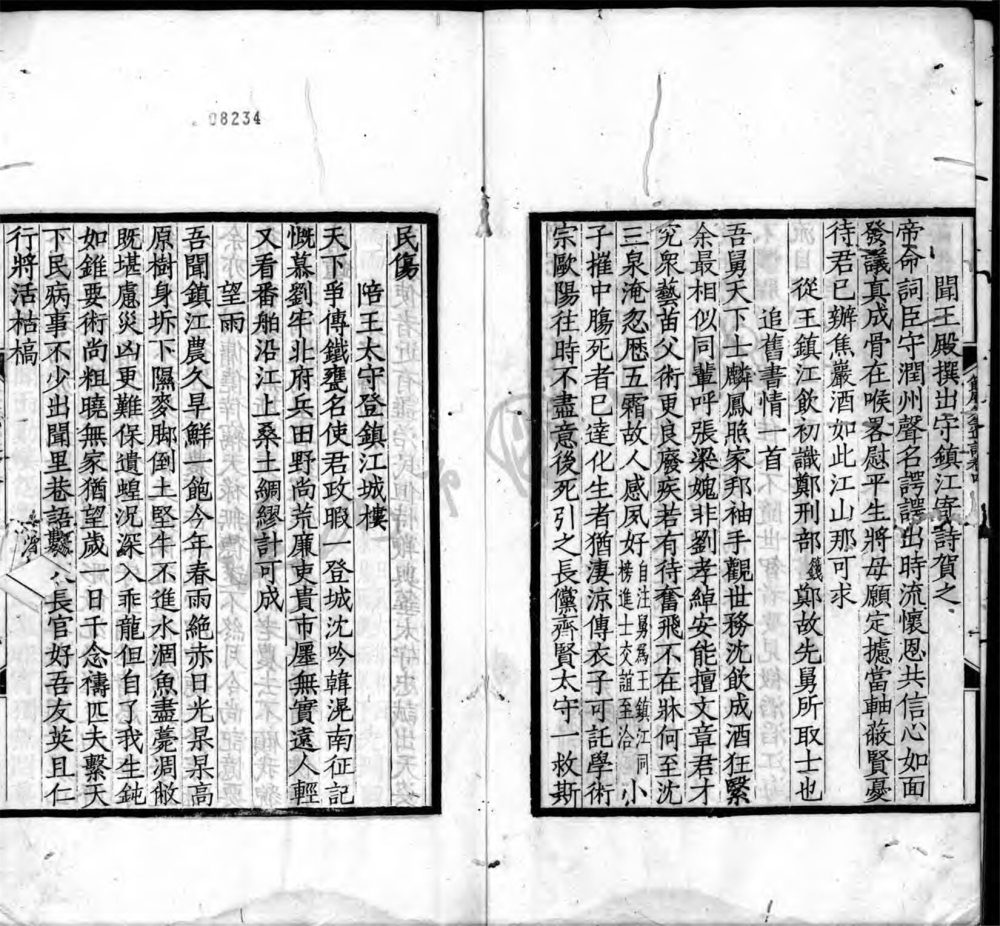 聞王殿撰出守鎮江寄詩賀之
帝命詞臣守潤州聲名諤諤出時流懷恩共信心如面
發議真成骨在喉畧慰平生將母願定攄當軸蔽賢憂
待君已辦焦巖酒如此江山那可求
從王鎮江飲初識鄭刑部錢鄭故先舅所取士也
追舊書情一首
吾舅天下士麟鳳煦家邦袖手觀世務沈飲成酒狂緊
余最相似同輩呼張梁媿非劉孝綽安能擅文章君才
究衆藝苗父術更良廢疾若有待奮飛不在牀何至沈
三泉淹忽歷五霜故人感夙好自注舅爲王鎮江同榜進士交誼至洽小
子摧中腸死者已達化生者猶淒涼傳衣子可託學術
宗歐陽往時不盡意後死引之長儻齊賢太守一救斯
民傷
陪王太守登鎮江城樓
天下爭傳鐵甕名使君政暇一登城沈吟韓滉南征記
慨慕劉牢北府兵田野尚荒廉吏貴市廛無實遠人輕
又看番舶沿江上桑土綢繆計可成
望雨
吾聞鎮江農久旱鮮一飽今年春雨絶赤日光杲杲高
原樹身坼下隰麥脚倒土堅牛不進水涸魚盡薨凋敝
既堪慮災凶更難保遺蝗況深入乖龍但自了我生鈍
如錐要術尚粗曉無家猶望歲一日千念禱匹夫繫天
下民病事不少出聞里巷語 長官好吾友英且仁
行將活枯槁
08234